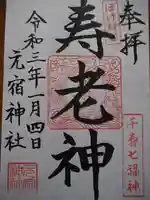 奉拝
寿老神
令和三年一月四日
元宿神社
千寿七福神